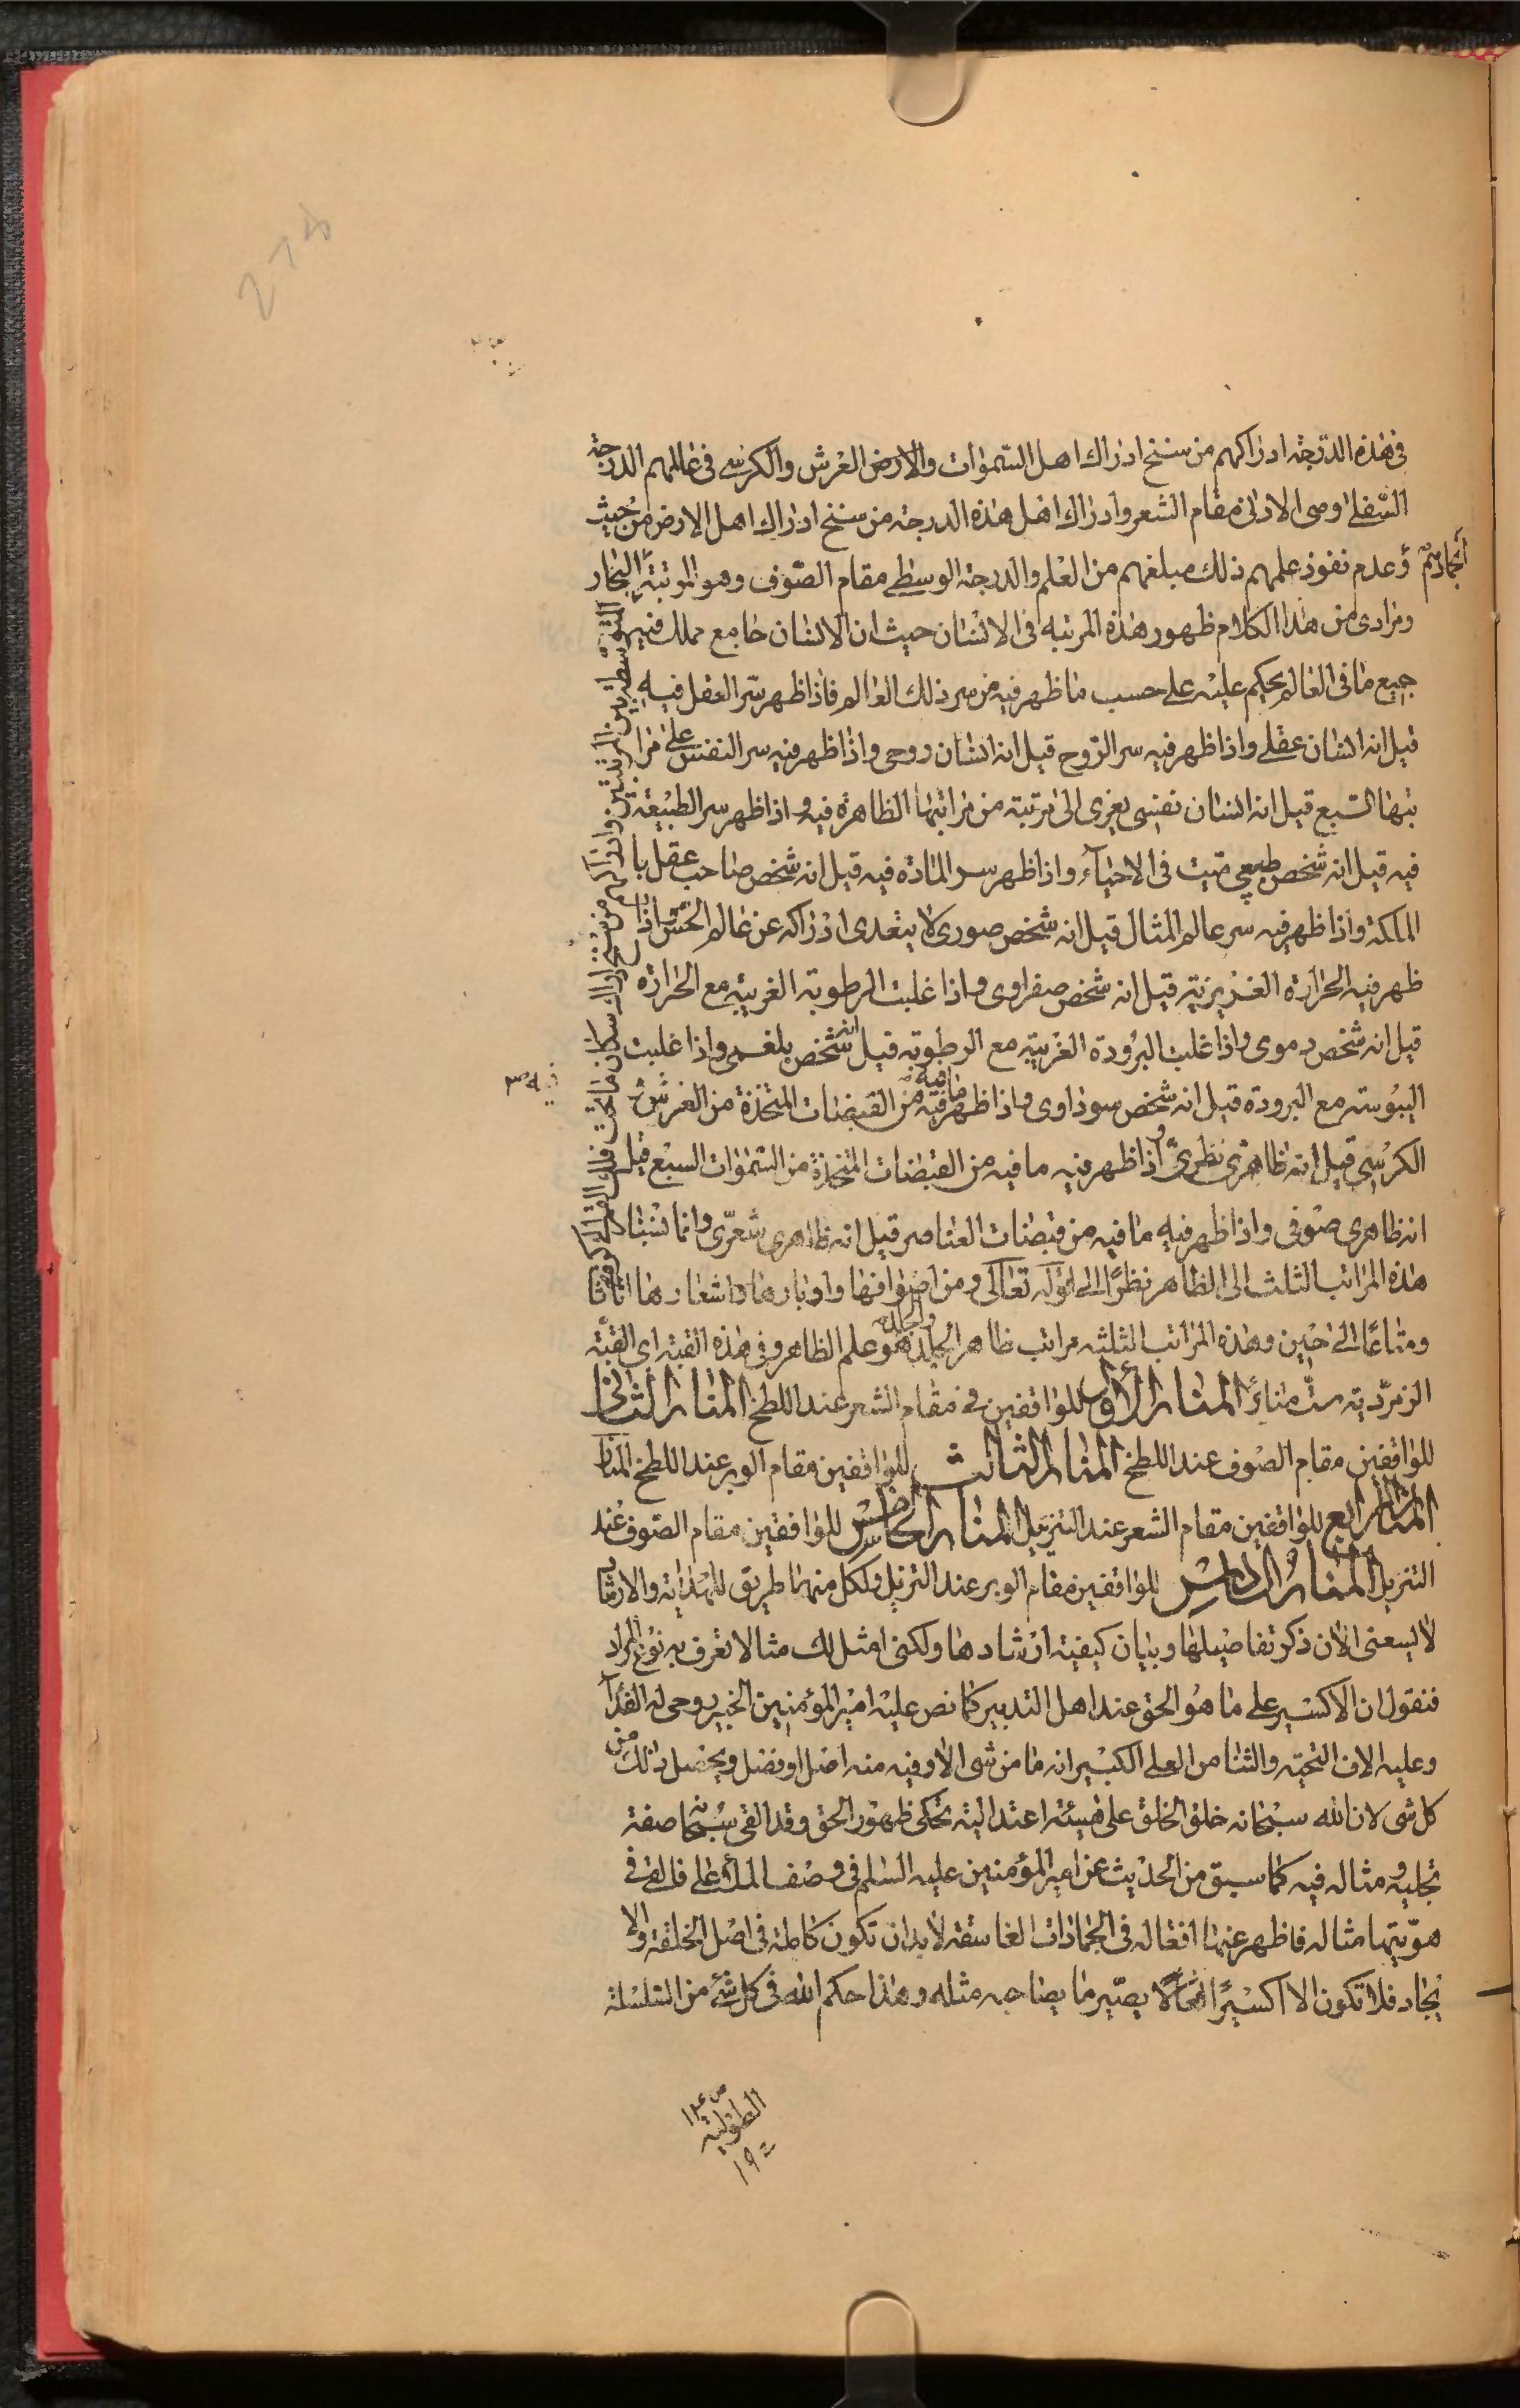 في هذه الدرجة ادراكهم من سنخ ادراك اهل السموات والارض العرش والكرسي في عالمهم الدرجة
السفلى اوصى الادنى مقام الشعر وادراك اهل هذه الدرجة من سنخ ادراك اهل الارض من حيث
انجمادهم وعدم نفوذ علمهم ذلك مبلغهم من العلم والدرجة الوسطى مقام الصوف وهو المرتبة البخار
المتوسطة بين المرتبتين وادراكهم من سنخ ادراك سكان ما تحت فلك القمر الى كرة
ومرادي من هذا الكلام ظهور هذه المرتبة في الانسان حيث ان الانسان جامع ملك فيه
جميع ما في العالم يحكم عليه على حسب ما ظهر فيه من سر ذلك العالم فاذا ظهر سر العقل فيه
قيل انه انسان عقلي واذا ظهر فيه سر الروح قيل انه انسان روحي واذا ظهر فيه سر النفس على مرا
تبها السبع قيل انه انسان نفسي يعزى الى مرتبة من مراتبها الظاهرة فيه واذا ظهر سر الطبيعة
فيه قيل انه شخص طبيعي ميت في الاحياء واذا ظهر سر المادة فيه قيل انه شخص صاحب عقل با
الملكة واذا ظهر فيه سر عالم المثال قيل انه شخص صوري لا يتعدى ادراكه عن عالم الحس اذا
ظهر فيه الحرارة الغريزية قيل انه شخص صفراوي واذا غلبت الرطوبة الغريبة مع الحرارة
قيل انه شخص دموي واذا غلبت البرودة الغريبة مع الرطوبة قيل انه شخص بلغمي واذا غلبت
اليبوسته مع البرودة قيل انه شخص سوداوي واذا ظهر فيه ما فيه من القبضات المتخذة من العرش و
الكرسي قيل انه ظاهري نظري واذا ظهر فيه ما فيه من القبضات المتخذة من السموات السبع قيل
انه ظاهري صوفي واذا ظهر فيه ما فيه من قبضات العناصر قيل انه ظاهري شعري وانما نسبنا
هذه المراتب الثلث الى الظاهر نظرا الى قوله تعالى ومن اصوافها واوبارها واشعارها اثاثا
ومتاعا الى حين وهذه المراتب الثلثة مراتب ظاهر الجلد والجلد هو علم الظاهر وفي هذه القبة اي القبة
الزمردية ست منائر المنار الأول للواقفين في مقام الشعر عند اللطخ المنار الثاني
للواقفين مقام الصوف عند اللطخ المنار الثالث للواقفين مقام الوبر عند اللطخ المنار
المنار الرابع للواقفين مقام الشعر عند التنزيل المنار الخامس للواقفين مقام الصوف عند
التنزيل المنار السادس للواقفين مقام الوبر عند التنزيل ولكل منهما طريق للهداية والارشاد
لا يسعني الان ذكر تفاصيلها وبيان كيفية ارشادها ولكني امثل لك مثالا تعرف به نوع المراد
فنقول ان الاكسير على ما هو الحق عند اهل التدبير كما نص عليه امير المؤمنين الخبير روحي له الفدآ
وعليه الاف التحية والثنا من العلي الكبير انه ما من شي الا وفيه منه اصل او فصل ويحصل ذلك من
كل شي لان الله سبحانه خلق الخلق على هيئة اعتدالية تحكي ظهور الحق وقد القى سبحانه صفة
تجليه ومثاله فيه كما سبق من الحديث عن امير المؤمنين عليه السلم في وصف الملأ الاعلى فالقى في
هويتها مثاله فاظهر عنها افعاله في الجمادات الغاسقة لا بد ان تكون كاملة في اصل الخلقة والا
يجاد فلا تكون الا اكسيرا فعالا يصير ما يصاحبه مثله وهذا حكم الله في كل شيء من السلسلة
الطولية